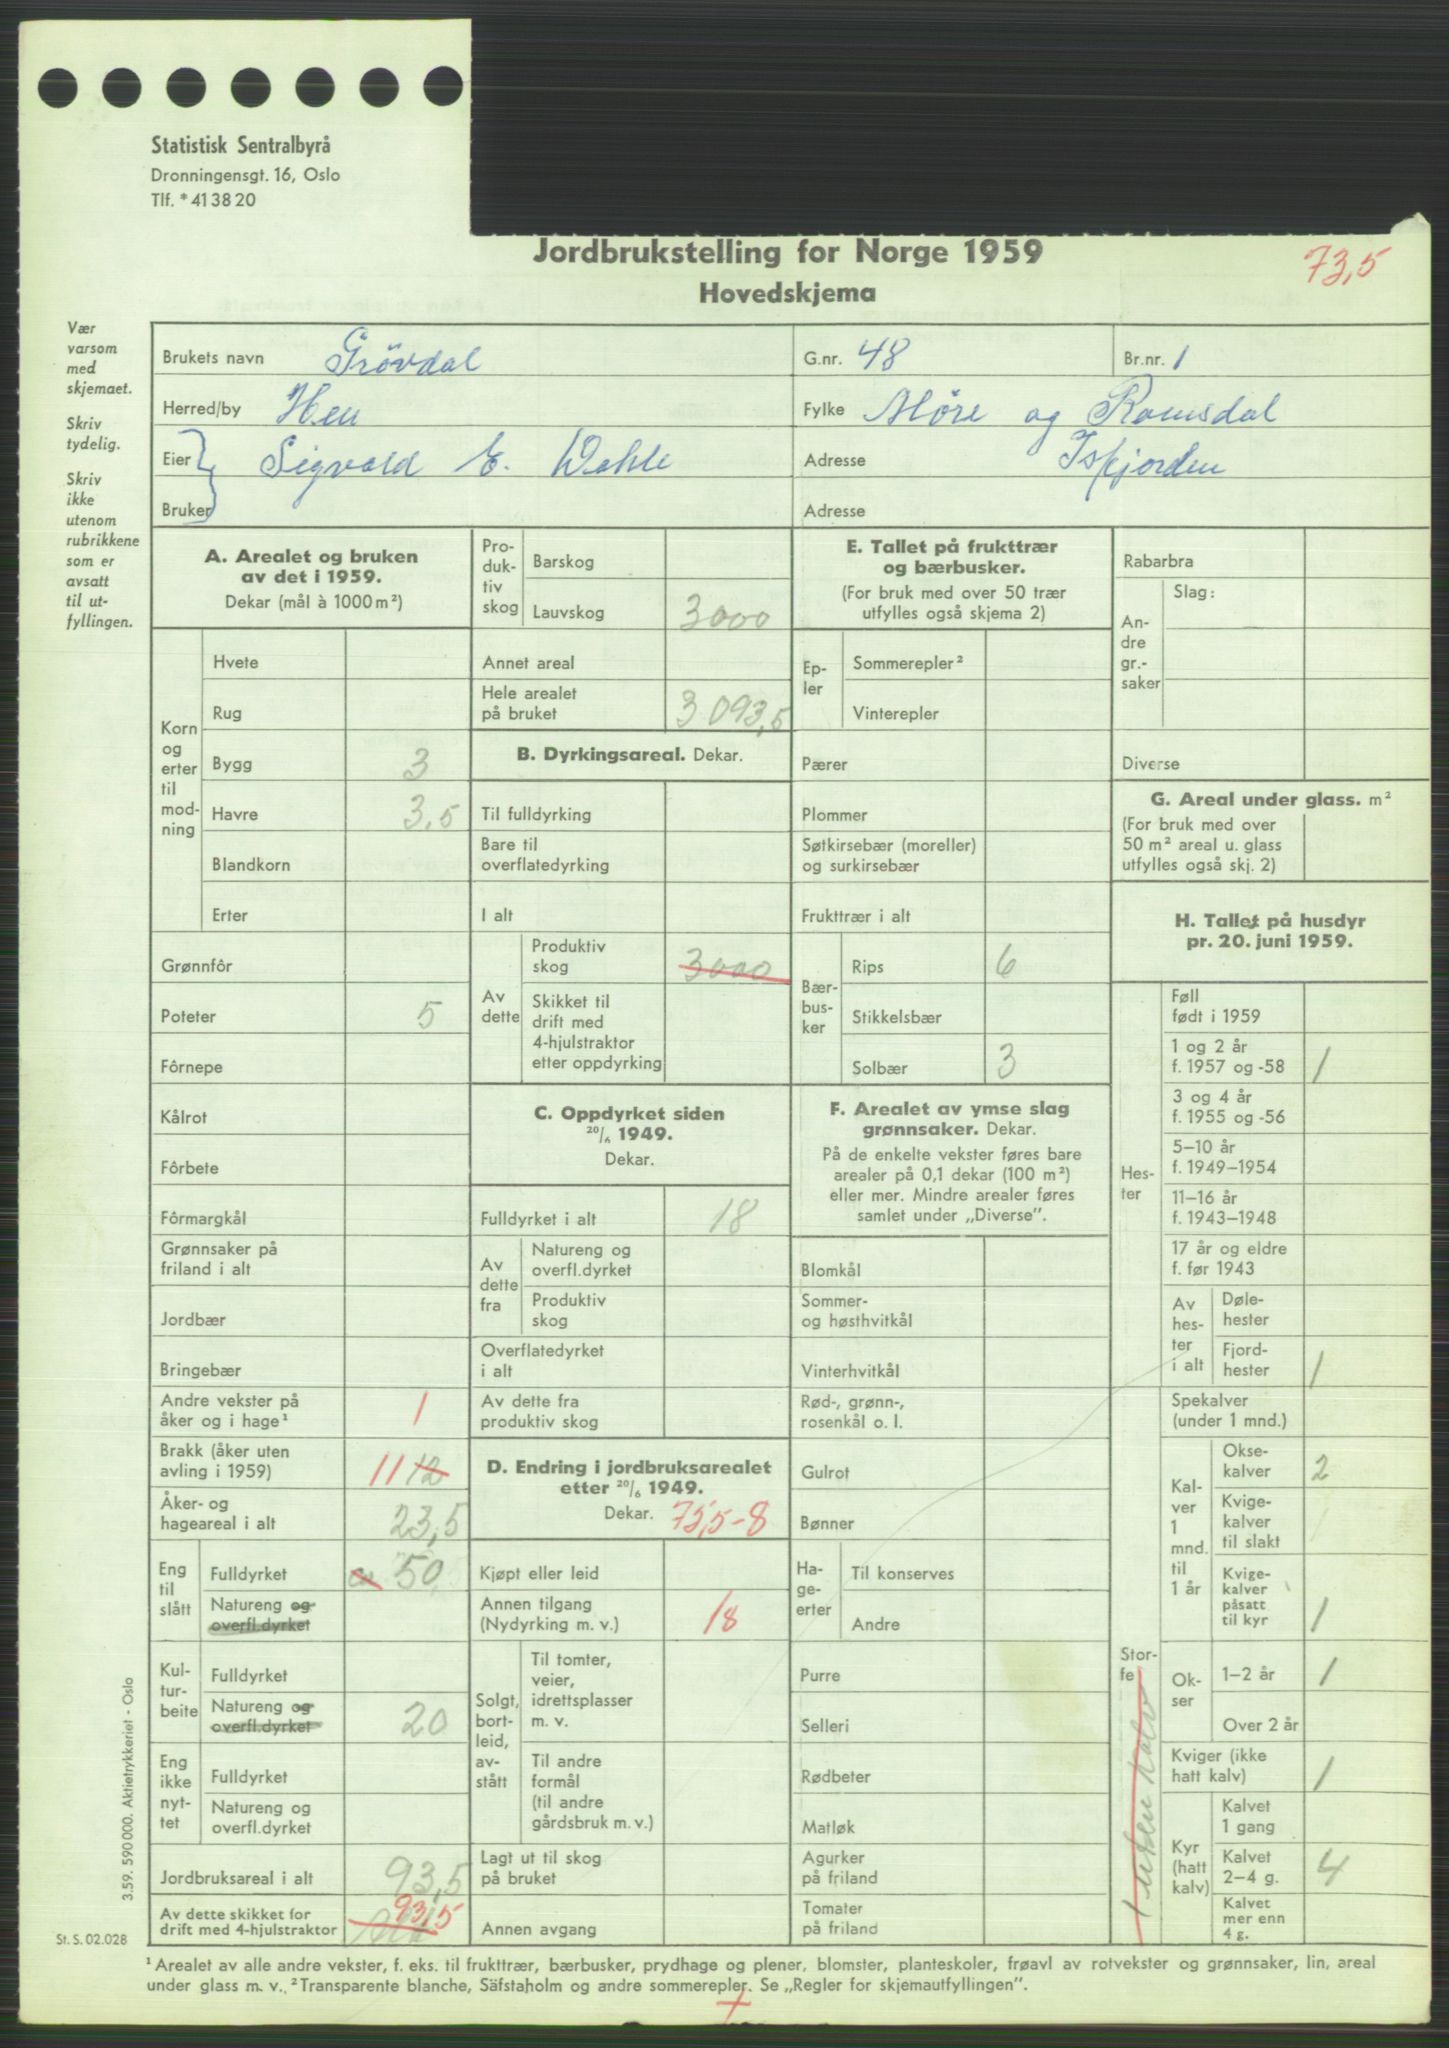 Statistisk Sentralbyrå
Dronningensgt. 16, Oslo
Tlf. * 41 38 20
Jordbrukstelling for Norge 1959
73,5
Hovedskjema
Vær
varsom
med
skjemaet.
Skriv
tydelig.
Skriv
ikke
utenom
rubrikkene
som er
avsatt
til ut-
fyllingen.
Brukets navn Grövdal G.nr. 48 Br.nr. 1
Herred/by Hen Fylke Möre og Romsdal
Eier Sigvald E. Dahle Adresse Isfjorden
Bruker Adresse
A. Arealet og bruken
av det i 1959.
Dekar (mål à 1000 m²)
Korn
og
erter
til
mod-
ning
Hvete
Rug
Bygg 3
Havre 3,5
Blandkorn
Erter
Grønnfôr
Poteter 5
Fôrnepe
Kålrot
Fôrbete
Fôrmargkål
Grønnsaker på
friland i alt
Jordbær
Bringebær
Andre vekster på
åker og i hage¹ 1
Brakk (åker uten
avling i 1959) 11 12
Åker- og
hageareal i alt 23,5
Eng
til
slått
Fulldyrket ca 50
Natureng og
overfl.dyrket
Kul-
tur-
beite
Fulldyrket
Natureng og
overfl.dyrket 20
Eng
ikke
nyt-
tet
Fulldyrket
Natureng og
overfl.dyrket
Jordbruksareal i alt 93,5
Av dette skikket for
drift med 4-hjulstraktor 93,5
Pro-
duk-
tiv
skog
Barskog
Lauvskog 3000
Annet areal
Hele arealet
på bruket 3093,5
B. Dyrkingsareal. Dekar.
Til fulldyrking
Bare til
overflatedyrking
I alt
Av
dette
Produktiv
skog 3000
Skikket til
drift med
4-hjulstraktor
etter oppdyrking
C. Oppdyrket siden
20/6 1949.
Dekar.
Fulldyrket i alt 18
Av
dette
fra
Natureng og
overfl.dyrket
Produktiv
skog
Overflatedyrket
i alt
Av dette fra
produktiv skog
D. Endring i jordbruksarealet
etter 20/6 1949.
Dekar. 75,5-8
Kjøpt eller leid
Annen tilgang
(Nydyrking m. v.) 18
Solgt,
bort-
leid,
av-
stått
Til tomter,
veier,
idrettsplasser
m. v.
Til andre
formål
(til andre
gårdsbruk m. v.)
Lagt ut til skog
på bruket
Annen avgang
E. Tallet på frukttrær
og bærbusker.
(For bruk med over 50 trær
utfylles også skjema 2)
Ep-
ler
Sommerepler²
Vinterepler
Pærer
Plommer
Søtkirsebær (moreller)
og surkirsebær
Frukttrær i alt
Bær-
bus-
ker
Rips 6
Stikkelsbær
Solbær 3
F. Arealet av ymse slag
grønnsaker. Dekar.
På de enkelte vekster føres bare
arealer på 0,1 dekar (100 m²)
eller mer. Mindre arealer føres
samlet under „Diverse”.
Blomkål
Sommer-
og høsthvitkål
Vinterhvitkål
Rød-, grønn-,
rosenkål o. l.
Gulrot
Bønner
Ha-
ge-
erter
Til konserves
Andre
Purre
Selleri
Rødbeter
Matløk
Agurker
på friland
Tomater
på friland
Rabarbra
An-
dre
gr.-
saker
Slag:
Diverse
G. Areal under glass. m²
(For bruk med over
50 m² areal u. glass
utfylles også skj. 2)
H. Tallet på husdyr
pr. 20. juni 1959.
Hes-
ter
Føll
født i 1959
1 og 2 år
f. 1957 og -58 1
3 og 4 år
f. 1955 og -56
5–10 år
f. 1949–1954
11–16 år
f. 1943–1948
17 år og eldre
f. før 1943
Av
hes-
ter
i alt
Døle-
hester
Fjord-
hester 1
Stor-
fe
Spekalver
(under 1 mnd.)
Kal-
ver
1
mnd.
til
1 år
Okse-
kalver 2
Kvige-
kalver
til slakt
Kvige-
kalver
påsatt
til kyr 1
Ok-
ser
1–2 år 1
Over 2 år
Kviger (ikke
hatt kalv) 1
Kyr
(hatt
kalv)
Kalvet
1 gang
Kalvet
2–4 g. 4
Kalvet
mer enn
4 g.
1 uten kalv
3.59. 590 000. Aktietrykkeriet - Oslo
St. S. 02.028
¹ Arealet av alle andre vekster, f. eks. til frukttrær, bærbusker, prydhage og plener, blomster, planteskoler, frøavl av rotvekster og grønnsaker, lin, areal
under glass m. v. ² Transparente blanche, Säfstaholm og andre sommerepler. Se „Regler for skjemautfyllingen”.
+